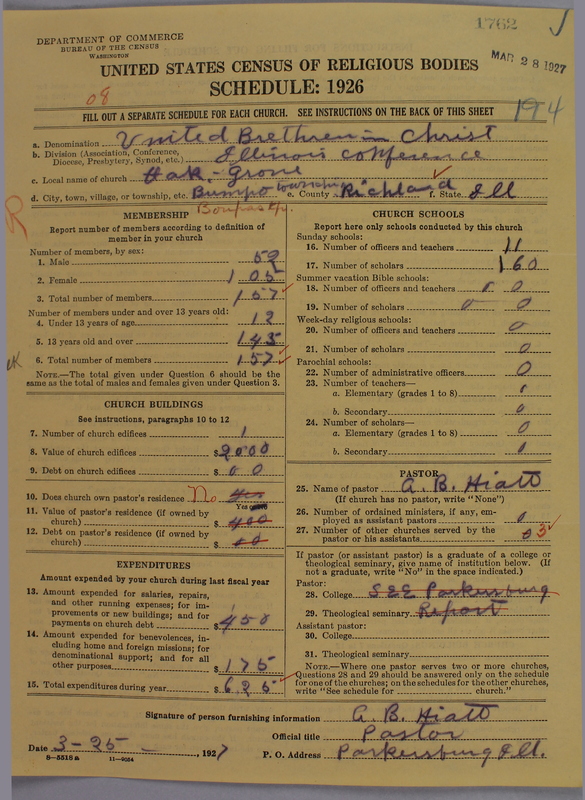 1762
DEPARTMENT OF COMMERCE
BUREAU OF THE CENSUS
WASHINGTON
MAR 28 1927
UNITED STATES CENSUS OF RELIGIOUS BODIES
SCHEDULE: 1926
08
194
FILL OUT A SEPARATE SCHEDULE FOR EACH CHURCH. SEE INSTRUCTIONS ON THE BACK OF THIS SHEET
a. Denomination United Brethren in Christ
b. Division (Association, Conference, Diocese, Presbytery, Synod, etc.) Illinois conference
c. Local name of church Oak-Grove
d. City, town, village, or township, etc. township e. County Richland f. State Ill
Bonpas Tp.
R
MEMBERSHIP
Report number of members according to definition of
member in your church
Number of members, by sex:
1. Male 52
2. Female 105
3. Total number of members 157
Number of members under and over 13 years old:
4. Under 13 years of age 12
5. 13 years old and over 145
6. Total number of members 157
NOTE.—The total given under Question 6 should be
same as the total of males and females given under Question 3.
CHURCH BUILDINGS
See instructions, paragraphs 10 to 12
7. Number of church edifices 1
8. Value of church edifices $ 2000
9. Debt on church edifices $ 0 0
10. Does church own pastor's residence No Yes
Yes or no
11. Value of pastor's residence (if owned by
church) $ 400
12. Debt on pastor's residence (if owned by
church) $ 00
EXPENDITURES
Amount expended by your church during last fiscal year
13. Amount expended for salaries, repairs,
and other running expenses; for im-
provements or new buildings; and for
payments on church debt $ 450
14. Amount expended for benevolences, in-
cluding home and foreign missions; for
denominational support; and for all
other purposes $ 175
15. Total expenditures during year $ 625
CHURCH SCHOOLS
Report here only schools conducted by this church
Sunday schools:
16. Number of officers and teachers 11
17. Number of scholars 160
Summer vacation Bible schools:
18. Number of officers and teachers 0
19. Number of scholars 0 0
Week-day religious schools:
20. Number of officers and teachers 0
21. Number of scholars 0
Parochial schools:
22. Number of administrative officers 0
23. Number of teachers—
a. Elementary (grades 1 to 8) 0
b. Secondary 0
24. Number of scholars—
a. Elementary (grades 1 to 8) 0
b. Secondary 0
PASTOR
25. Name of pastor A. B. Hiatt
(If church has no pastor, write "None")
26. Number of ordained ministers, if any, em-
ployed as assistant pastors 0
27. Number of other churches served by the
pastor or his assistants 3
If pastor (or assistant pastor) is a graduate of a college or
theological seminary, give name of institution below. (If
not a graduate, write "No" in the space indicated.)
Pastor:
28. College SEE Parkersburg
29. Theological seminary Report
Assistant pastor:
30. College
31. Theological seminary
NOTE.—Where one pastor serves two or more churches,
Questions 28 and 29 should be answered only on the schedule
for one of the churches; on the schedules for the other churches,
write "See schedule for church."
Signature of person furnishing information A. B. Hiatt
Official title Pastor
Date 3-25, 1927 P. O. Address Parkersburg Ill.
8-5518a 11-9054